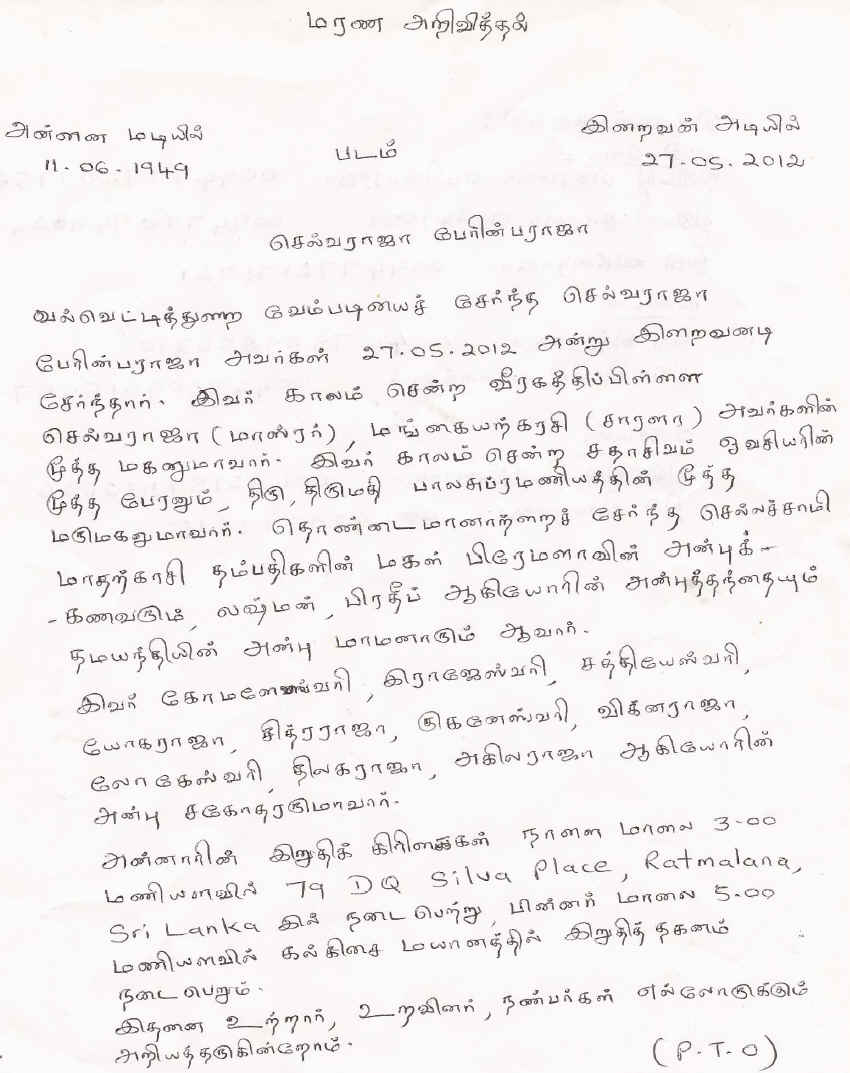 மரண அறிவித்தல்
அன்னை மடியில் இறைவன் அடியில்
11.06.1949 படம் 27.05.2012
செல்வராஜா பேரின்பராஜா
வல்வெட்டித்துறை வேம்படியைச் சேர்ந்த செல்வராஜா
பேரின்பராஜா அவர்கள் 27.05.2012 அன்று இறைவனடி
சேர்ந்தார். இவர் காலம் சென்ற வீரகத்திப்பிள்ளை
செல்வராஜா (மாஸ்ரர்), மங்கையற்கரசி (சாரளா) அவர்களின்
மூத்த மகனுமாவார். இவர் காலம் சென்ற சதாசிவம் ஓவசியரின்
மூத்த பேரனும், திரு, திருமதி பாலசுப்ரமணியத்தின் மூத்த
மருமகனுமாவார். தொண்டைமானாற்றைச் சேர்ந்த செல்லச்சாமி
மாதற்காசி தம்பதிகளின் மகள் பிரேமளாவின் அன்புக் -
- கணவரும், லஷ்மன், பிரதீப் ஆகியோரின் அன்புத்தந்தையும்
தமயந்தியின் அன்பு மாமனாரும் ஆவார்.
இவர் கோமளேஸ்வரி, இராஜேஸ்வரி, சத்தியேஸ்வரி,
யோகராஜா, சித்ரராஜா, இகனேஸ்வரி, விக்னராஜா,
லோகேஸ்வரி, திலகராஜா, அகிலராஜா ஆகியோரின்
அன்பு சகோதரருமாவார்.
அன்னாரின் இறுதிக் கிரிகைகள் நாளை மாலை 3-00
மணியளவில் 79 DQ Silva Place, Ratmalana,
Sri Lanka இல் நடைபெற்று, பின்னர் மாலை 5.00
மணியளவில் கல்கிசை மயானத்தில் இறுதித் தகனம்
நடைபெறும்.
இதனை உற்றார், உறவினர், நண்பர்கள் எல்லோருக்கும்
அறியத்தருகின்றோம்.
(P.T.O)